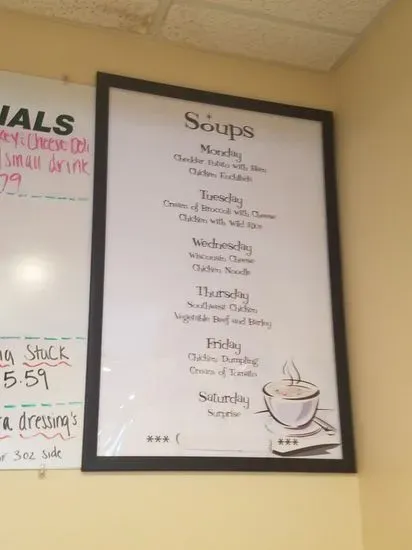 IALS
key & Cheese Deli
/small drink
79
ng Stuck
5.59
ra dressing's
or 3oz side
Soups
Monday
Cheddar Potato with Ham
Chicken
Tuesday
Cream of Broccoli with Cheese
Chicken with Wild Rice
Wednesday
Wisconsin Cheese
Chicken Noodle
Thursday
Southwest Chicken
Vegetable Beef and Barley
Friday
Chicken Dumpling
Cream of Tomato
Saturday
Surprise
*** ( ***